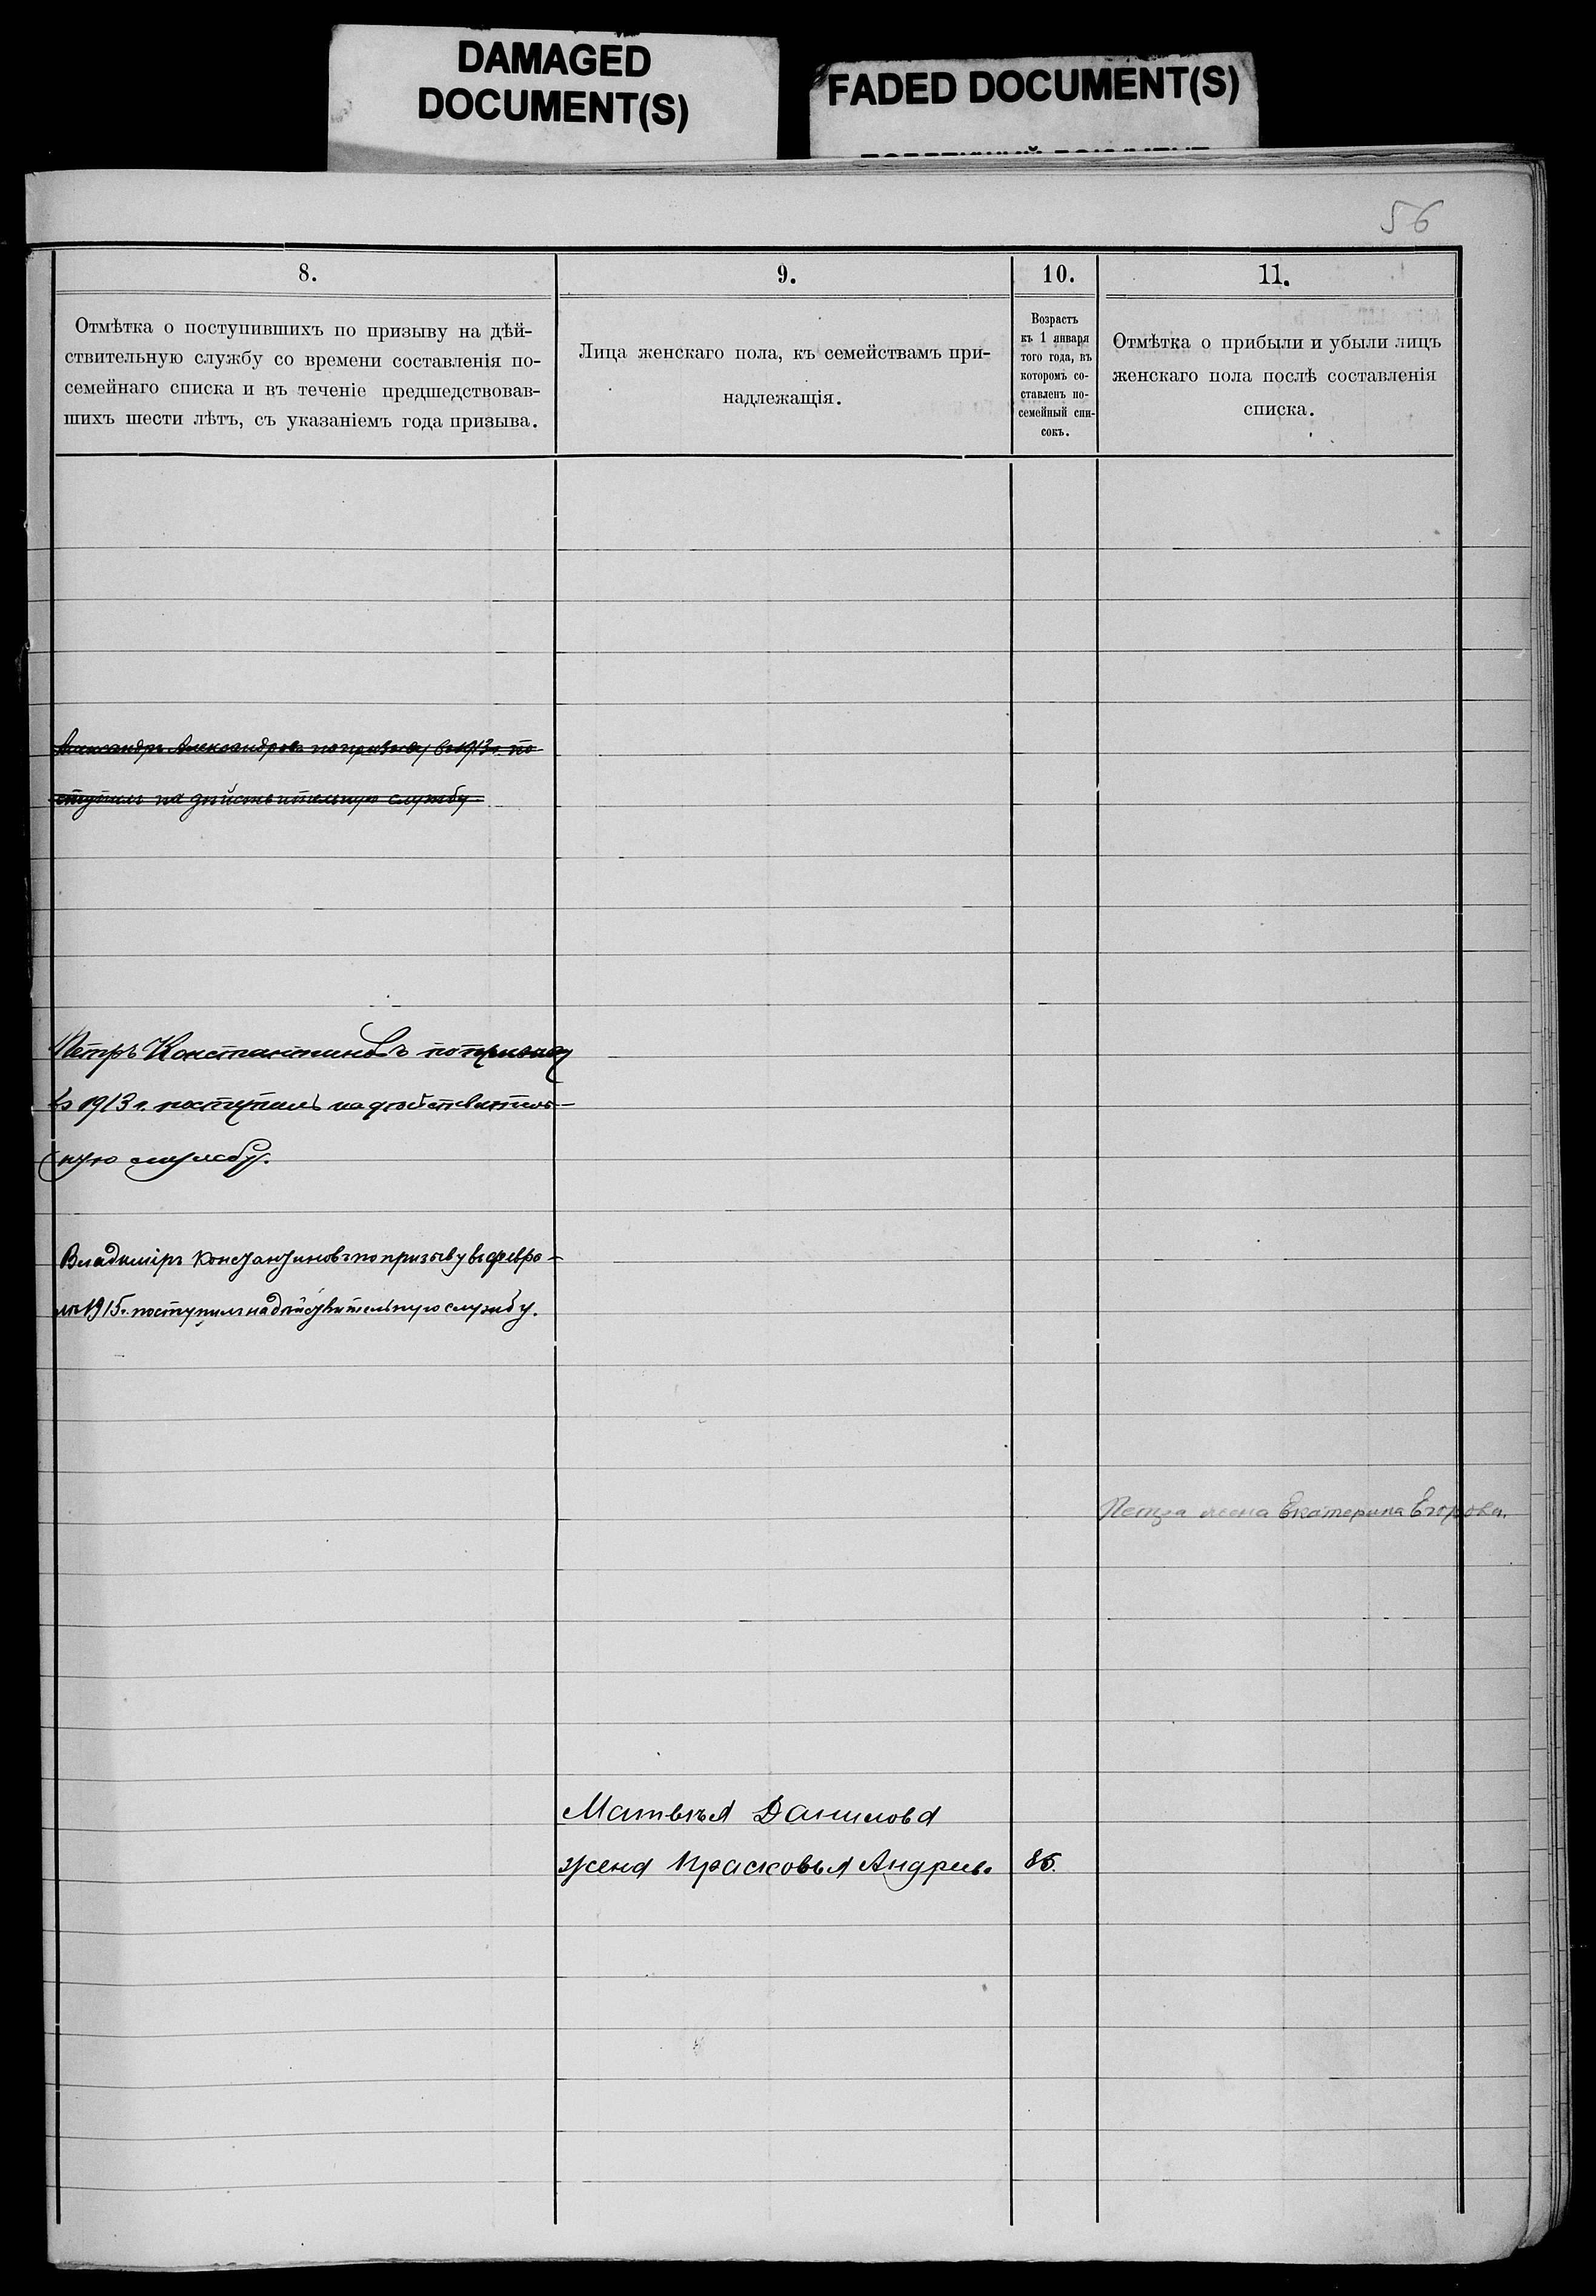 DAMAGED
DOCUMENT(S)
FADED DOCUMENT(S)
56
8.
9.
10.
11.
Отмѣтка о поступившихъ по призыву на дѣй-
ствительную службу со времени составленія по-
семейнаго списка и въ теченіе предшедствовав-
шихъ шести лѣтъ, съ указаніемъ года призыва.
Лица женскаго пола, къ семействамъ при-
надлежащія.
Возрастъ
къ 1 января
того года, въ
которомъ со-
ставленъ по-
семейный спи-
сокъ.
Отмѣтка о прибыли и убыли лицъ
женскаго пола послѣ составленія
списка.
Александръ Александровъ по призыву въ 1913 г. по
ступилъ на дѣйствительную службу
Петръ Константиновъ по призыву
въ 1913 г. поступилъ на дѣйствитель-
ную службу.
Владиміръ Константиновъ по призыву въ февра-
лѣ 1915 г. поступилъ на дѣйствительную службу.
Петра жена Екатерина Егорова.
Матвѣя Данилова
жена Прасковья Андрѣев.